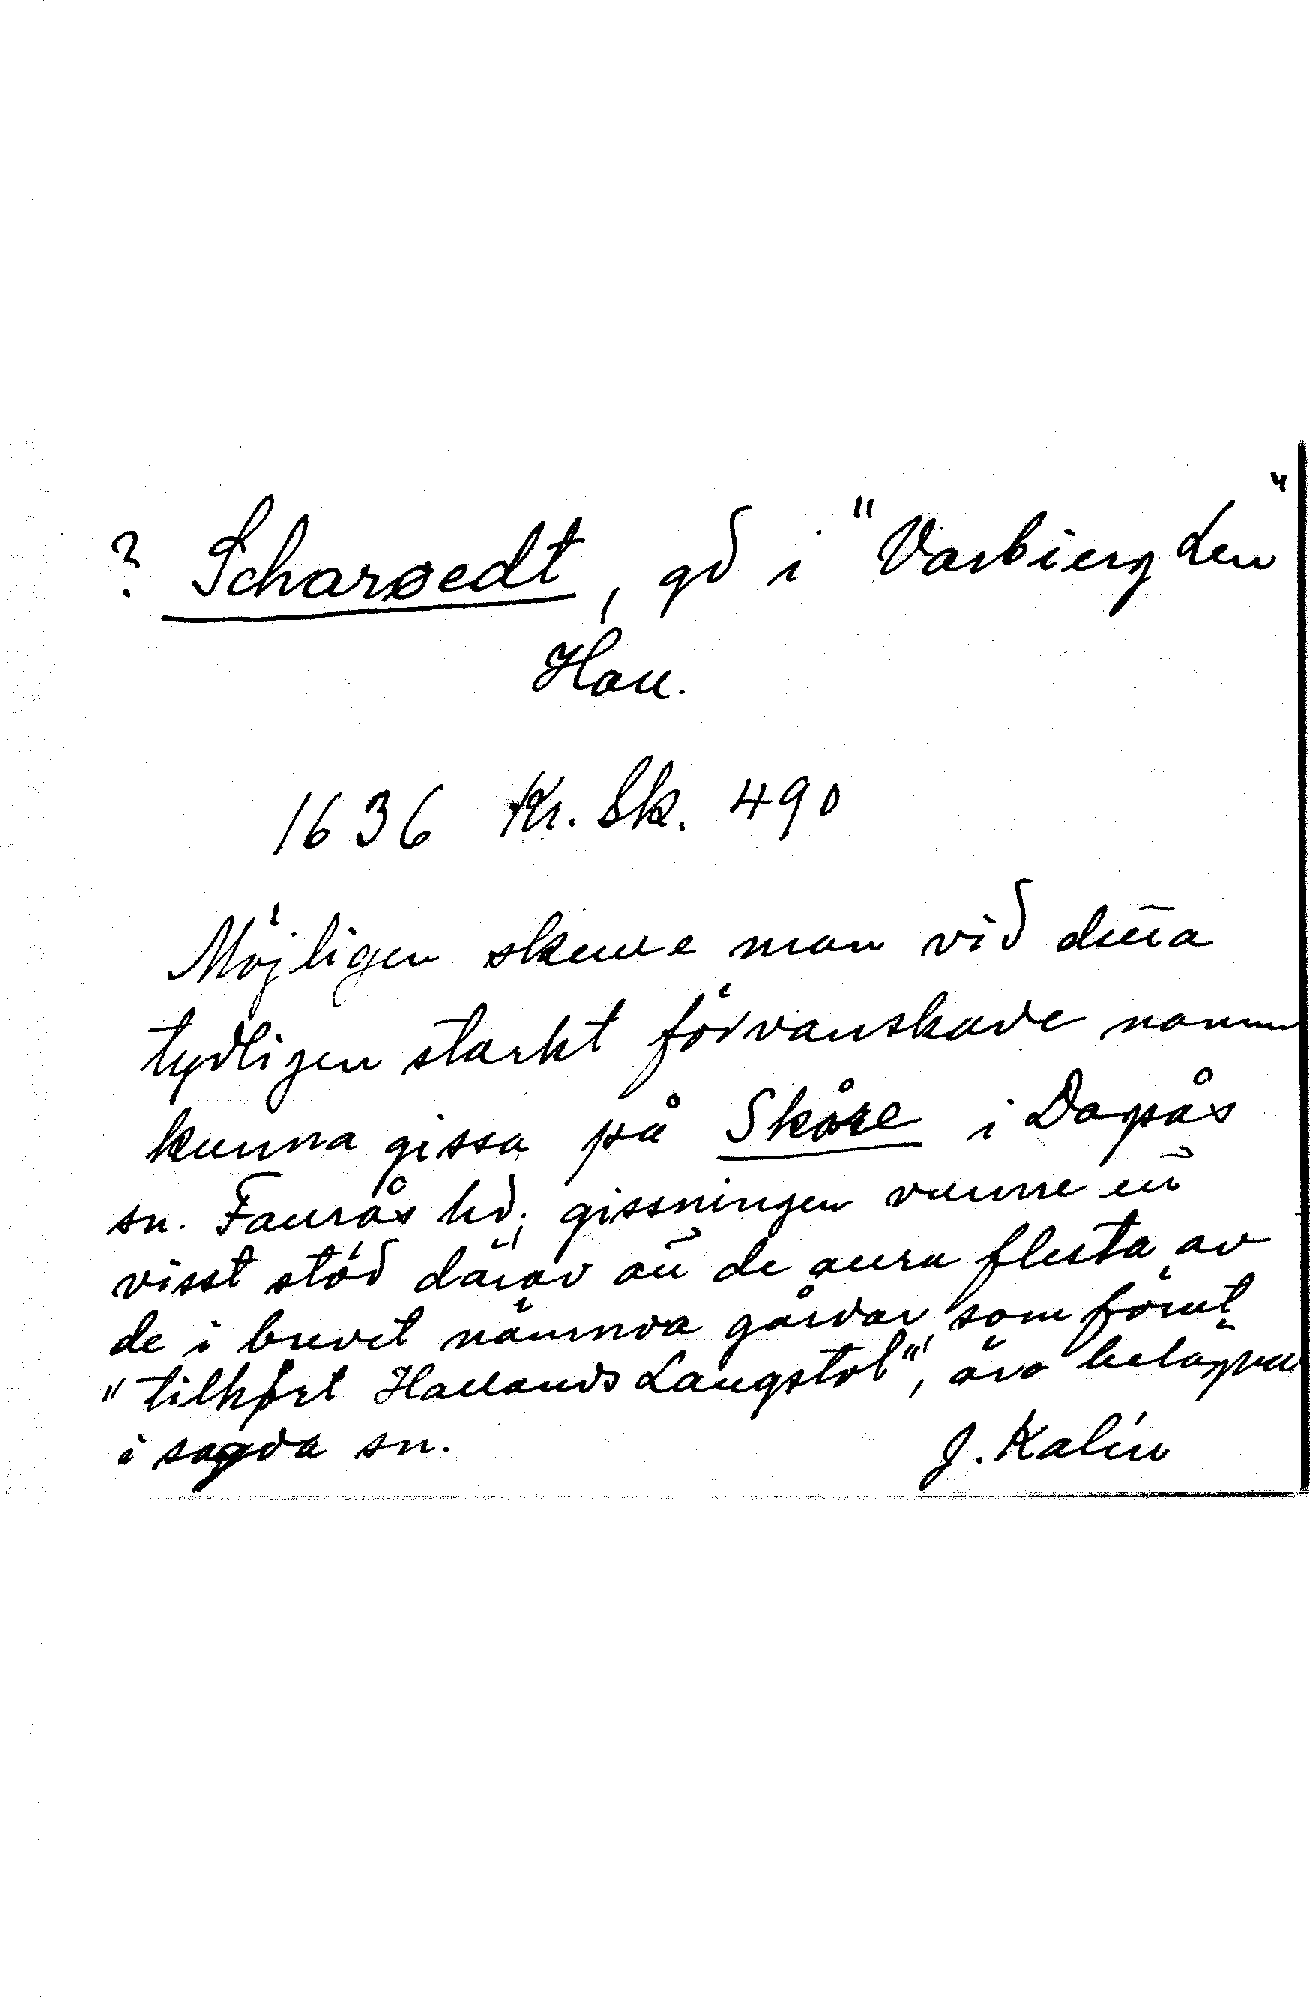 ? Scharøedt, gd i "Varbierg Len"
Hall.
1636 Kr. Sk. 490
Möjligen skulle man vid detta
tydligen starkt förvanskade namn
kunna gissa på Skåre i Dagsås
sn. Faurås hd; gissningen vunne ett
visst stöd därav att de allra flesta av
de i brevet nämnda gårdar, som förut
"tilhørt Hallands Laugstol", äro belägna
i sagda sn. J. Kalén